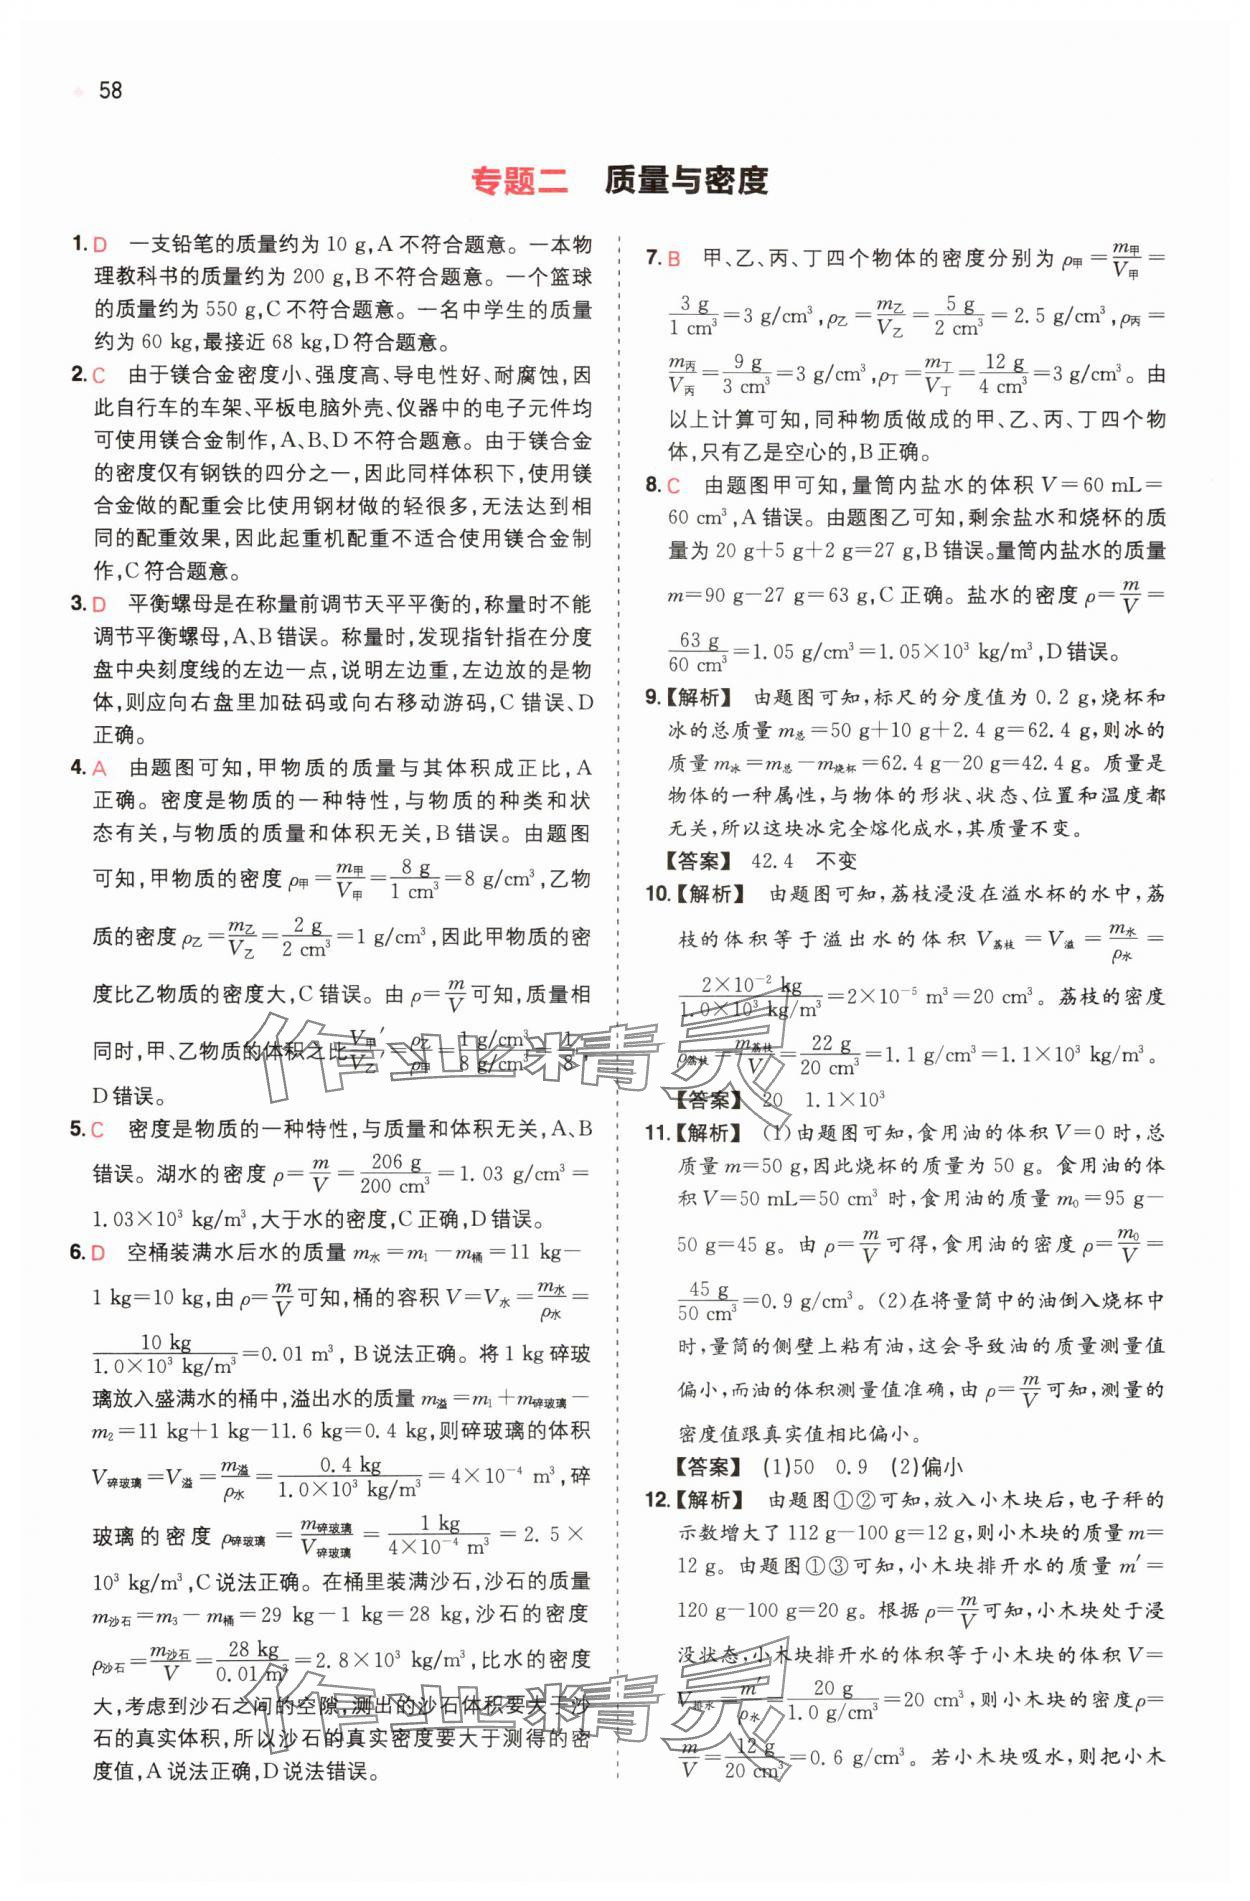 58
专题二　质量与密度
1. D　一支铅笔的质量约为 10 g,A 不符合题意。一本物
理教科书的质量约为 200 g,B不符合题意。一个篮球
的质量约为 550 g,C 不符合题意。一名中学生的质量
约为 60 kg,最接近 68 kg,D符合题意。
2. C　由于镁合金密度小、强度高、导电性好、耐腐蚀,因
此自行车的车架、平板电脑外壳、仪器中的电子元件均
可使用镁合金制作,A、B、D 不符合题意。由于镁合金
的密度仅有钢铁的四分之一,因此同样体积下,使用镁
合金做的配重会比使用钢材做的轻很多,无法达到相
同的配重效果,因此起重机配重不适合使用镁合金制
作,C符合题意。
3. D　平衡螺母是在称量前调节天平平衡的,称量时不能
调节平衡螺母,A、B错误。称量时,发现指针指在分度
盘中央刻度线的左边一点,说明左边重,左边放的是物
体,则应向右盘里加砝码或向右移动游码,C 错误、D
正确。
4. A　由题图可知,甲物质的质量与其体积成正比,A
正确。密度是物质的一种特性,与物质的种类和状
态有关,与物质的质量和体积无关,B 错误。由题图
可知,甲物质的密度 ρ甲=m甲/V甲=8 g/1 cm³=8 g/cm³,乙物
质的密度 ρ乙=m乙/V乙=2 g/2 cm³=1 g/cm³,因此甲物质的密
度比乙物质的密度大,C 错误。由 ρ=m/V可知,质量相
同时,甲、乙物质的体积之比V甲′/V乙′=ρ乙/ρ甲=1 g/cm³/8 g/cm³=1/8,
D错误。
5. C　密度是物质的一种特性,与质量和体积无关,A、B
错误。湖水的密度 ρ=m/V=206 g/200 cm³=1.03 g/cm³=
1.03×10³ kg/m³,大于水的密度,C正确,D错误。
6. D　空桶装满水后水的质量 m水=m₁-m桶=11 kg-
1 kg=10 kg,由 ρ=m/V可知,桶的容积 V=V水=m水/ρ水=
10 kg/1.0×10³ kg/m³=0.01 m³, B说法正确。将 1 kg碎玻
璃放入盛满水的桶中,溢出水的质量 m溢=m₁+m碎玻璃-
m₂=11 kg+1 kg-11.6 kg=0.4 kg,则碎玻璃的体积
V碎玻璃=V溢=m溢/ρ水=0.4 kg/1.0×10³ kg/m³=4×10⁻⁴ m³,碎
玻璃的密度 ρ碎玻璃=m碎玻璃/V碎玻璃=1 kg/4×10⁻⁴ m³=2.5×
10³ kg/m³,C说法正确。在桶里装满沙石,沙石的质量
m沙石=m₃-m桶=29 kg-1 kg=28 kg,沙石的密度
ρ沙石=m沙石/V=28 kg/0.01 m³=2.8×10³ kg/m³,比水的密度
大,考虑到沙石之间的空隙,测出的沙石体积要大于沙
石的真实体积,所以沙石的真实密度要大于测得的密
度值,A说法正确,D说法错误。
7. B　甲、乙、丙、丁四个物体的密度分别为 ρ甲=m甲/V甲=
3 g/1 cm³=3 g/cm³,ρ乙=m乙/V乙=5 g/2 cm³=2.5 g/cm³,ρ丙=
m丙/V丙=9 g/3 cm³=3 g/cm³,ρ丁=m丁/V丁=12 g/4 cm³=3 g/cm³。由
以上计算可知,同种物质做成的甲、乙、丙、丁四个物
体,只有乙是空心的,B正确。
8. C　由题图甲可知,量筒内盐水的体积 V=60 mL=
60 cm³,A错误。由题图乙可知,剩余盐水和烧杯的质
量为 20 g+5 g+2 g=27 g,B错误。量筒内盐水的质量
m=90 g-27 g=63 g,C 正确。盐水的密度 ρ=m/V=
63 g/60 cm³=1.05 g/cm³=1.05×10³ kg/m³,D错误。
9.【解析】　由题图可知,标尺的分度值为 0.2 g,烧杯和
冰的总质量 m总=50 g+10 g+2.4 g=62.4 g,则冰的
质量 m冰=m总-m烧杯=62.4 g-20 g=42.4 g。质量是
物体的一种属性,与物体的形状、状态、位置和温度都
无关,所以这块冰完全熔化成水,其质量不变。
【答案】　42.4　不变
10.【解析】　由题图可知,荔枝浸没在溢水杯的水中,荔
枝的体积等于溢出水的体积 V荔枝=V溢=m水/ρ水=
2×10⁻² kg/1.0×10³ kg/m³=2×10⁻⁵ m³=20 cm³。荔枝的密度
ρ荔枝=m荔枝/V=22 g/20 cm³=1.1 g/cm³=1.1×10³ kg/m³。
【答案】　20　1.1×10³
11.【解析】　(1)由题图可知,食用油的体积 V=0 时,总
质量 m=50 g,因此烧杯的质量为 50 g。食用油的体
积 V=50 mL=50 cm³ 时,食用油的质量 m₀=95 g-
50 g=45 g。由 ρ=m/V可得,食用油的密度 ρ=m₀/V=
45 g/50 cm³=0.9 g/cm³。(2)在将量筒中的油倒入烧杯中
时,量筒的侧壁上粘有油,这会导致油的质量测量值
偏小,而油的体积测量值准确,由 ρ=m/V可知,测量的
密度值跟真实值相比偏小。
【答案】　(1)50　0.9　(2)偏小
12.【解析】　由题图①②可知,放入小木块后,电子秤的
示数增大了 112 g-100 g=12 g,则小木块的质量 m=
12 g。由题图①③可知,小木块排开水的质量 m′=
120 g-100 g=20 g。根据 ρ=m/V可知,小木块处于浸
没状态,小木块排开水的体积等于小木块的体积 V=
V排水=m′/ρ水=20 g/1.0 g/cm³=20 cm³,则小木块的密度ρ=
m/V=12 g/20 cm³=0.6 g/cm³。若小木块吸水,则把小木
作业精灵
作业精灵